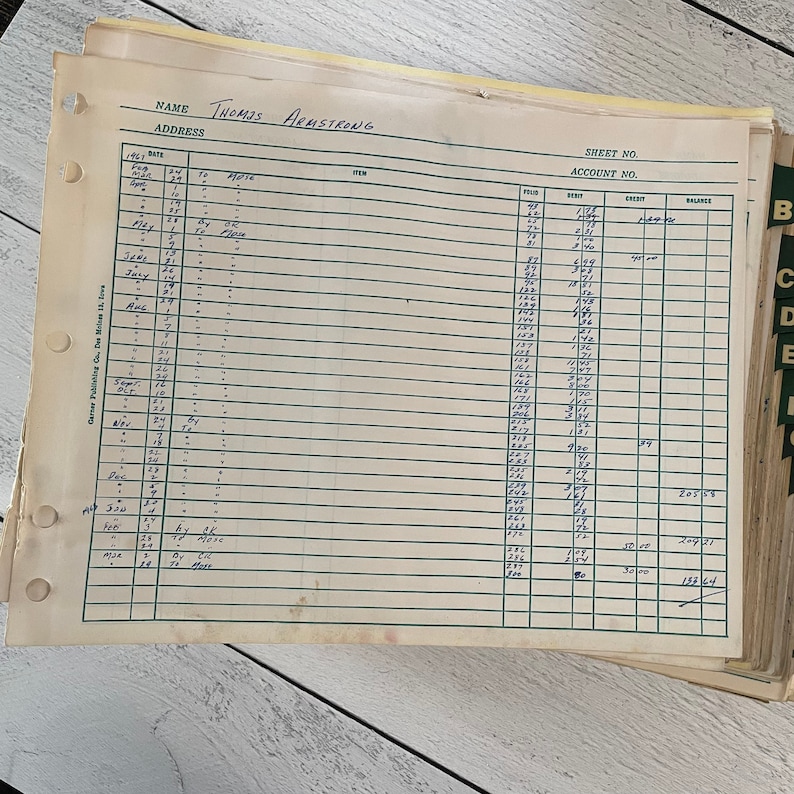 NAME THOMAS ARMSTRONG
ADDRESS
SHEET NO.
ACCOUNT NO.
DATE ITEM FOLIO DEBIT CREDIT BALANCE
1967
FEB 24 TO MDSE 43 1 73
MAR 29 " " 62 1 39 1 39
APR 1 " " 65 78
" 10 " " 72 2 31
" 19 " " 78 1 00
" 25 " " 81 3 40
" 28 By CK 45 00
MAY 1 To MDSE 87 6 99
" 5 " " 89 3 08
" 9 " " 92 71
" 13 " " 95 13 81
JUNE 21 " " 122 52
" 26 " " 126 1 43
JULY 14 " " 139 1 16
" 19 " " 142 1 81
" 21 " " 144 36
" 29 " " 151 21
AUG 1 " " 153 1 42
" 5 " " 157 1 36
" 7 " " 158 71
" 8 " " 158 11 45
" 11 " " 161 7 47
" 21 " " 162 3 04
" 24 " " 166 8 00
" 26 " " 168 1 70
" 29 " " 171 1 15
SEPT. 16 " " 189 3 11
OCT. 10 " " 206 3 84
" 21 " " 215 52
" 23 " " 217 1 81
" 24 By " 218 39
NOV 4 To " 225 9 20
" 7 " " 227 41
" 18 " " 233 83
" 21 " " 235 2 19
" 24 " " 236 42
" 28 " " 239 3 07
DEC 2 " " 242 1 61 205 58
" 5 " " 245 81
" 9 " " 248 28
" " " 261 19
JAN 4 " " 263 72
" 24 " " 272 52 209 21
FEB 3 by CK 50 00
" 28 To MDSE 286 1 09
" 29 " " 286 2 54
MAR 2 By CK 287 30 00
" 29 To MDSE 300 80 133 64
Garner Publishing Co., Des Moines 13, Iowa
B
C
D
E